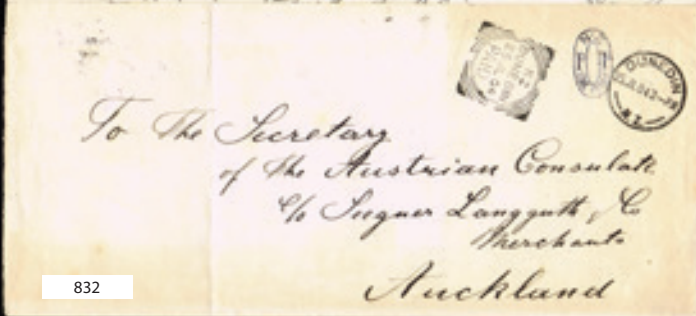 DUNEDIN
N.Z.
To The Secretary
of the Austrian Consulate
c/o Seegner Langguth & Co
Merchants
Auckland
832